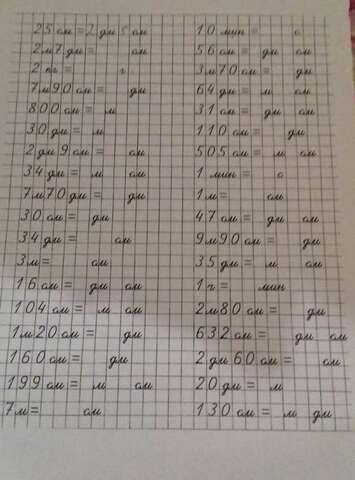 25см=2дм 5см
2м7дм= см
2кг= г
7м90см= дм
800см= м
30дм= м
2дм9см= см
34дм= м см
7м70дм= дм
30см= дм
34дм= см
3м= см
16см= дм см
104см= м см
1м20см= дм
160см= дм
199см= м см
7м= см
10мин= с
56см= дм см
3м70см= дм
64дм= м см
31см= дм см
110см= дм
505см= м см
1мин= с
1м= см
47см= дм см
9м90см= дм
35дм= м см
1ч= мин
2м80см= дм
632см= дм см
2дм60см= см
20дм= м
130см= м дм